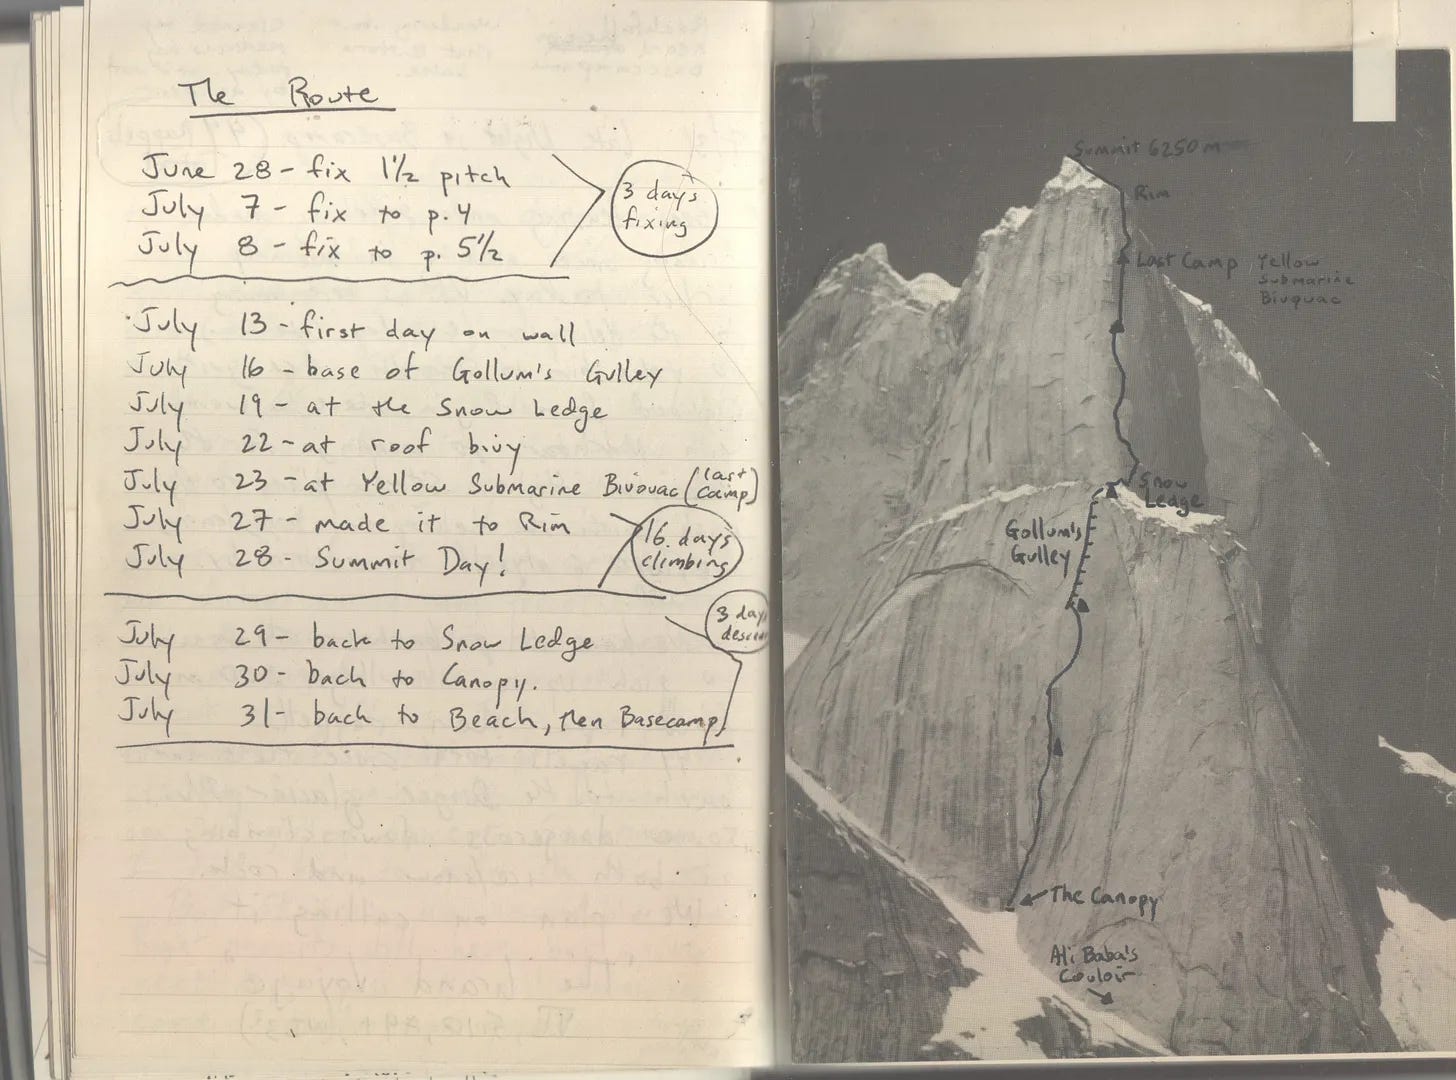 The Route
June 28 - fix 1½ pitch
July 7 - fix to p. 4
July 8 - fix to p. 5½
3 days
fixing
July 13 - first day on wall
July 16 - base of Gollum's Gulley
July 19 - at the Snow Ledge
July 22 - at roof bivy
July 23 - at Yellow Submarine Bivouac (last
camp)
July 27 - made it to Rim
July 28 - Summit Day!
16 days
climbing
July 29 - back to Snow Ledge
July 30 - back to Canopy.
July 31 - back to Beach, then Basecamp.
3 days
Summit 6250 m
Rim
Last Camp Yellow
Submarine
Bivouac
Snow
Ledge
Gollum's
Gulley
The Canopy
Ali Baba's
Couloir